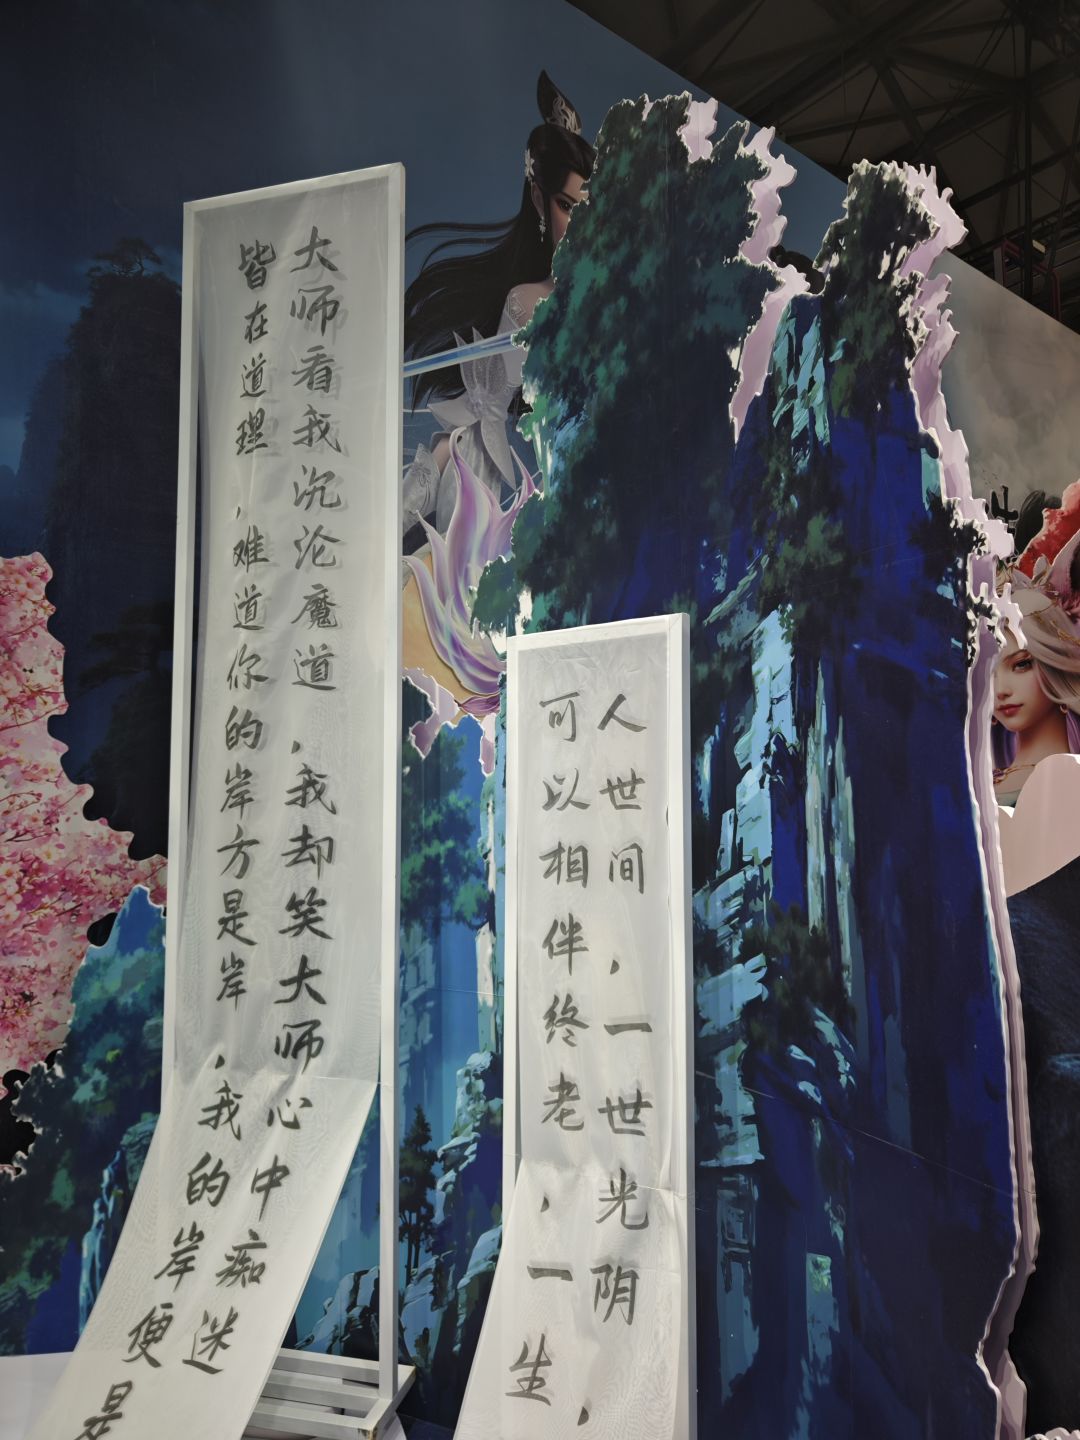 大师看我沉沦魔道，我却笑大师心中痴迷
皆在道理，难道你的岸方是岸，我的岸便是
人世间，一世光阴，
可以相伴终老，一生